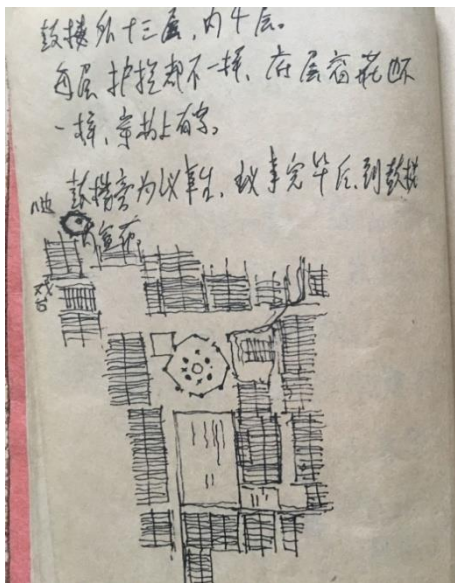 鼓楼外十三层，内4层。
每层护拦都不一样，底层窗花也不
一样，字书上有字。
鼓楼旁为议事坐，议事完毕后，到鼓楼
戏台